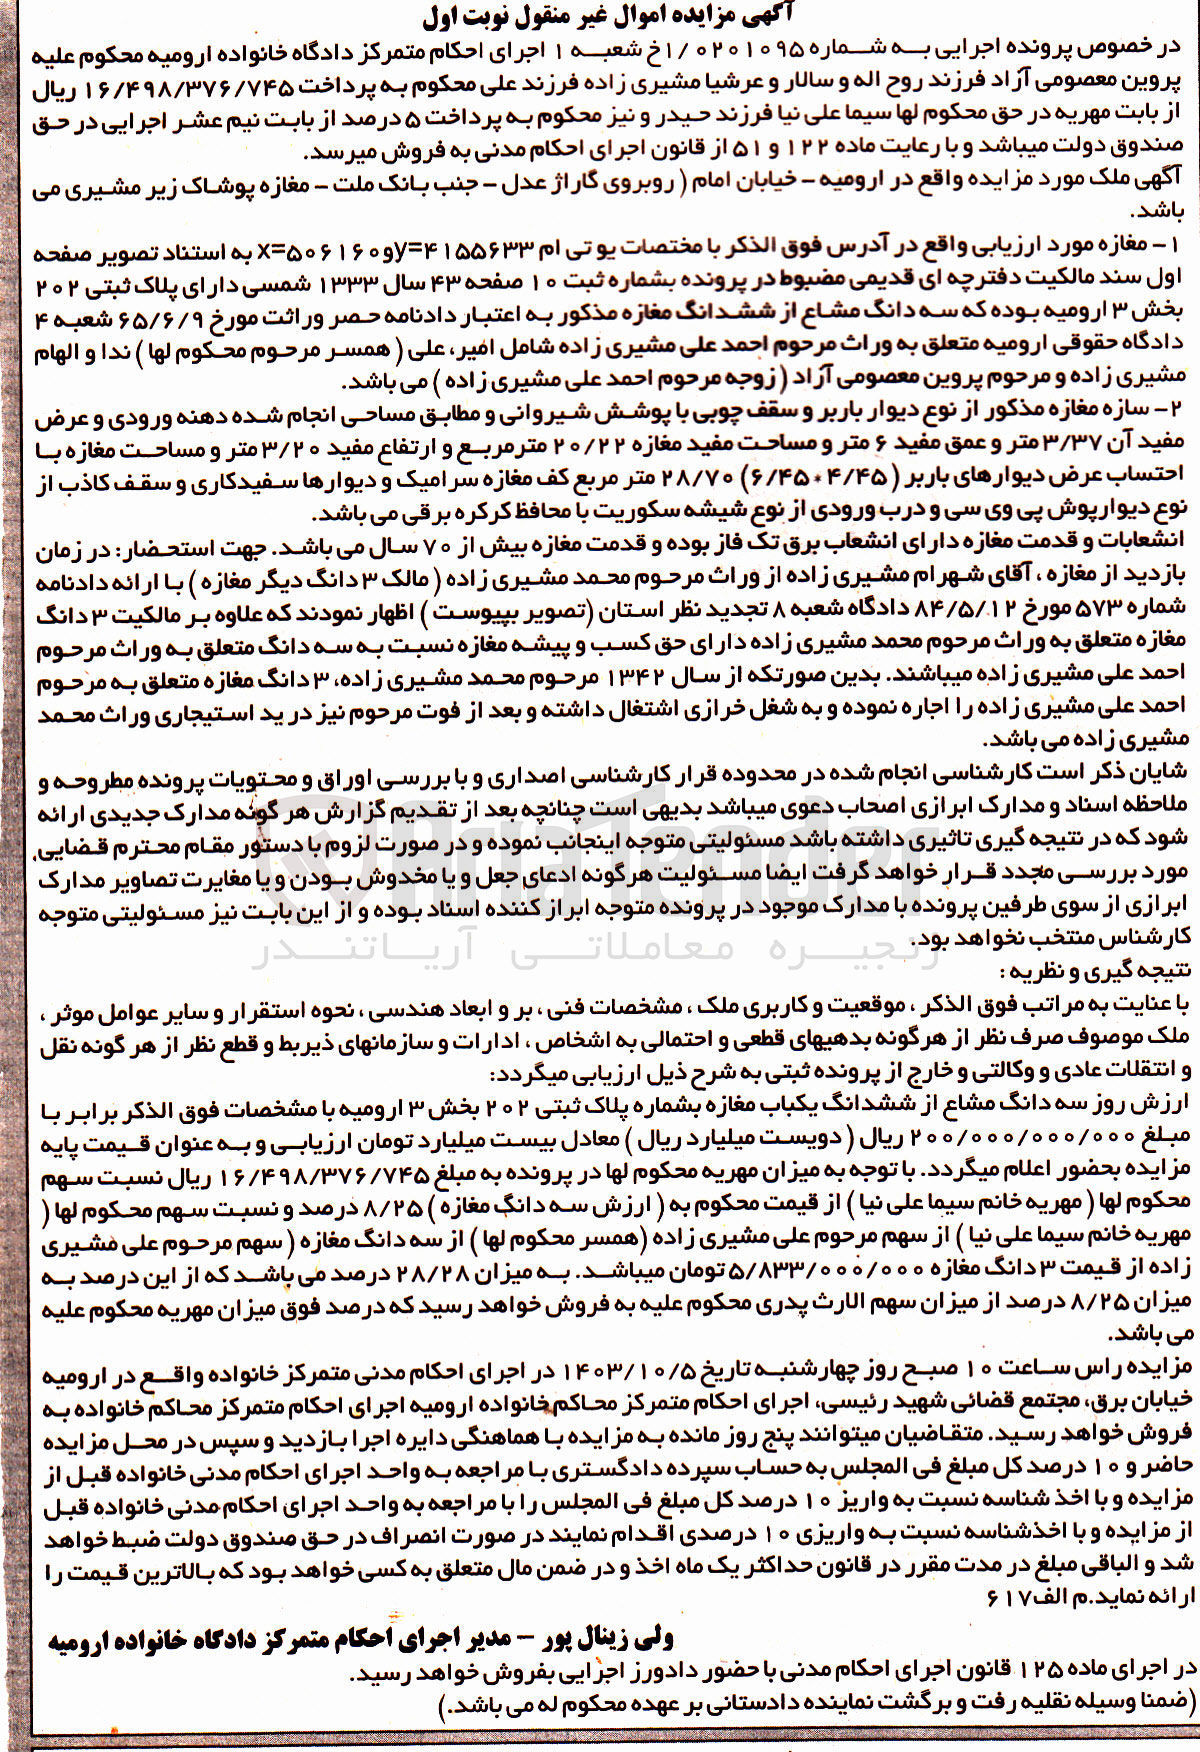 آگهی مزایده اموال غیر منقول نوبت اول
در خصوص پرونده اجرایی به شماره ۱/۰۲۰۱۰۹۵خ شعبه ۱ اجرای احکام متمرکز دادگاه خانواده ارومیه محکوم علیه
پروین معصومی آزاد فرزند روح اله و سالار و عرشیا مشیری زاده فرزند علی محکوم به پرداخت ۱۶/۴۹۸/۳۷۶/۷۴۵ ریال
از بابت مهریه در حق محکوم لها سیما علی نیا فرزند حیدر و نیز محکوم به پرداخت ۵ درصد از بابت نیم عشر اجرایی در حق
صندوق دولت میباشد و با رعایت ماده ۱۲۲ و ۵۱ از قانون اجرای احکام مدنی به فروش میرسد.
آگهی ملک مورد مزایده واقع در ارومیه - خیابان امام ( روبروی گاراژ عدل - جنب بانک ملت - مغازه پوشاک زیر مشیری می
باشد.
۱- مغازه مورد ارزیابی واقع در آدرس فوق الذکر با مختصات یو تی ام y=۴۱۵۵۶۳۳وx=۵۰۶۱۶۰ به استناد تصویر صفحه
اول سند مالکیت دفترچه ای قدیمی مضبوط در پرونده بشماره ثبت ۱۰ صفحه ۴۳ سال ۱۳۳۳ شمسی دارای پلاک ثبتی ۲۰۲
بخش ۳ ارومیه بوده که سه دانگ مشاع از ششدانگ مغازه مذکور به اعتبار دادنامه حصر وراثت مورخ ۶۵/۶/۹ شعبه ۴
دادگاه حقوقی ارومیه متعلق به وراث مرحوم احمد علی مشیری زاده شامل امیر، علی ( همسر مرحوم محکوم لها ) ندا و الهام
مشیری زاده و مرحوم پروین معصومی آزاد ( زوجه مرحوم احمد علی مشیری زاده ) می باشد.
۲- سازه مغازه مذکور از نوع دیوار باربر و سقف چوبی با پوشش شیروانی و مطابق مساحی انجام شده دهنه ورودی و عرض
مفید آن ۳/۳۷ متر و عمق مفید ۶ متر و مساحت مفید مغازه ۲۰/۲۲ مترمربع و ارتفاع مفید ۳/۲۰ متر و مساحت مغازه با
احتساب عرض دیوارهای باربر ( ۴/۴۵*۶/۴۵) ۲۸/۷۰ متر مربع کف مغازه سرامیک و دیوارها سفیدکاری و سقف کاذب از
نوع دیوارپوش پی وی سی و درب ورودی از نوع شیشه سکوریت با محافظ کرکره برقی می باشد.
انشعابات و قدمت مغازه دارای انشعاب برق تک فاز بوده و قدمت مغازه بیش از ۷۰ سال می باشد. جهت استحضار: در زمان
بازدید از مغازه ، آقای شهرام مشیری زاده از وراث مرحوم محمد مشیری زاده ( مالک ۳ دانگ دیگر مغازه ) با ارائه دادنامه
شماره ۵۷۳ مورخ ۸۴/۵/۱۲ دادگاه شعبه ۸ تجدید نظر استان (تصویر بپیوست ) اظهار نمودند که علاوه بر مالکیت ۳ دانگ
مغازه متعلق به وراث مرحوم محمد مشیری زاده دارای حق کسب و پیشه مغازه نسبت به سه دانگ متعلق به وراث مرحوم
احمد علی مشیری زاده میباشند. بدین صورتکه از سال ۱۳۴۲ مرحوم محمد مشیری زاده، ۳ دانگ مغازه متعلق به مرحوم
احمد علی مشیری زاده را اجاره نموده و به شغل خرازی اشتغال داشته و بعد از فوت مرحوم نیز در ید استیجاری وراث محمد
مشیری زاده می باشد.
شایان ذکر است کارشناسی انجام شده در محدوده قرار کارشناسی اصداری و با بررسی اوراق و محتویات پرونده مطروحه و
ملاحظه اسناد و مدارک ابرازی اصحاب دعوی میباشد بدیهی است چنانچه بعد از تقدیم گزارش هر گونه مدارک جدیدی ارائه
شود که در نتیجه گیری تاثیری داشته باشد مسئولیتی متوجه اینجانب نموده و در صورت لزوم با دستور مقام محترم قضایی،
مورد بررسی مجدد قرار خواهد گرفت ایضا مسئولیت هرگونه ادعای جعل و یا مخدوش بودن و یا مغایرت تصاویر مدارک
ابرازی از سوی طرفین پرونده با مدارک موجود در پرونده متوجه ابراز کننده اسناد بوده و از این بابت نیز مسئولیتی متوجه
کارشناس منتخب نخواهد بود.
AriaTender
زنجیره معاملاتی آریاتندر
نتیجه گیری و نظریه :
با عنایت به مراتب فوق الذکر ، موقعیت و کاربری ملک ، مشخصات فنی ، بر و ابعاد هندسی ، نحوه استقرار و سایر عوامل موثر ،
ملک موصوف صرف نظر از هرگونه بدهیهای قطعی و احتمالی به اشخاص ، ادارات و سازمانهای ذیربط و قطع نظر از هر گونه نقل
و انتقلات عادی و وکالتی و خارج از پرونده ثبتی به شرح ذیل ارزیابی میگردد:
ارزش روز سه دانگ مشاع از ششدانگ یکباب مغازه بشماره پلاک ثبتی ۲۰۲ بخش ۳ ارومیه با مشخصات فوق الذکر برابر با
مبلغ ۲۰۰/۰۰۰/۰۰۰/۰۰۰ ریال ( دویست میلیارد ریال ) معادل بیست میلیارد تومان ارزیابی و به عنوان قیمت پایه
مزایده بحضور اعلام میگردد. با توجه به میزان مهریه محکوم لها در پرونده به مبلغ ۱۶/۴۹۸/۳۷۶/۷۴۵ ریال نسبت سهم
محکوم لها ( مهریه خانم سیما علی نیا ) از قیمت محکوم به ( ارزش سه دانگ مغازه ) ۸/۲۵ درصد و نسبت سهم محکوم لها (
مهریه خانم سیما علی نیا ) از سهم مرحوم علی مشیری زاده (همسر محکوم لها ) از سه دانگ مغازه ( سهم مرحوم علی مشیری
زاده از قیمت ۳ دانگ مغازه ۵/۸۳۳/۰۰۰/۰۰۰ تومان میباشد. به میزان ۲۸/۲۸ درصد می باشد که از این درصد به
میزان ۸/۲۵ درصد از میزان سهم الارث پدری محکوم علیه به فروش خواهد رسید که درصد فوق میزان مهریه محکوم علیه
می باشد.
مزایده راس ساعت ۱۰ صبح روز چهارشنبه تاریخ ۱۴۰۳/۱۰/۵ در اجرای احکام مدنی متمرکز خانواده واقع در ارومیه
خیابان برق، مجتمع قضائی شهید رئیسی، اجرای احکام متمرکز محاکم خانواده ارومیه اجرای احکام متمرکز محاکم خانواده به
فروش خواهد رسید. متقاضیان میتوانند پنج روز مانده به مزایده با هماهنگی دایره اجرا بازدید و سپس در محل مزایده
حاضر و ۱۰ درصد کل مبلغ فی المجلس به حساب سپرده دادگستری با مراجعه به واحد اجرای احکام مدنی خانواده قبل از
مزایده و با اخذ شناسه نسبت به واریز ۱۰ درصد کل مبلغ فی المجلس را با مراجعه به واحد اجرای احکام مدنی خانواده قبل
از مزایده و با اخذشناسه نسبت به واریزی ۱۰ درصدی اقدام نمایند در صورت انصراف در حق صندوق دولت ضبط خواهد
شد و الباقی مبلغ در مدت مقرر در قانون حداکثر یک ماه اخذ و در ضمن مال متعلق به کسی خواهد بود که بالاترین قیمت را
ارائه نماید.م الف۶۱۷
ولی زینال پور - مدیر اجرای احکام متمرکز دادگاه خانواده ارومیه
در اجرای ماده ۱۲۵ قانون اجرای احکام مدنی با حضور دادورز اجرایی بفروش خواهد رسید.
(ضمنا وسیله نقلیه رفت و برگشت نماینده دادستانی بر عهده محکوم له می باشد.)